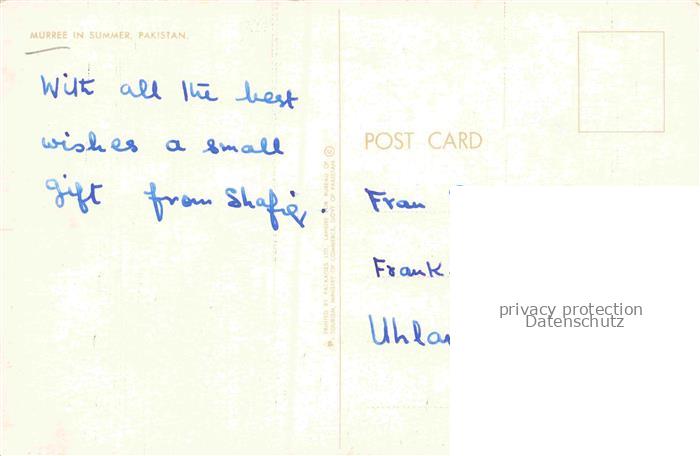 MURREE IN SUMMER, PAKISTAN.
With all the best
wishes a small
gift from Shafiq.
PRINTED BY PACKAGES LTD. LAHORE FOR BUREAU OF
TOURISM, MINISTRY OF COMMERCE, GOVT OF PAKISTAN
POST CARD
Fran
Frank
Uhla
privacy protection
Datenschutz